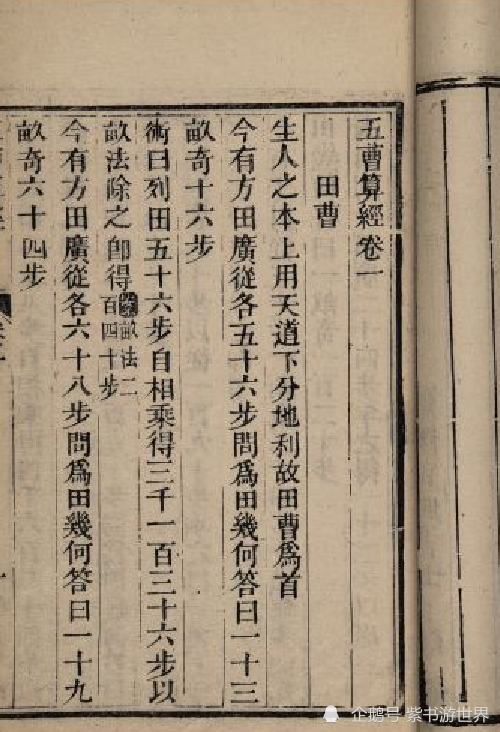 五曹算經卷一
田曹
生人之本上用天道下分地利故田曹爲首
今有方田廣從各五十六步問爲田幾何答曰一十三
畝奇十六步
術曰列田五十六步自相乘得三千一百三十六步以
畝法除之卽得畝法二百四十步
今有方田廣從各六十八步問爲田幾何答曰一十九
畝奇六十四步
企鹅号 紫书游世界